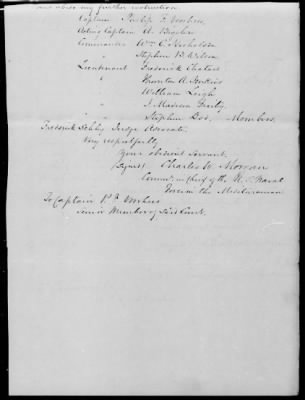 and abide my further instruction.
Captain Philip F. Voorhees
Acting Captain A. Bigelow
Commander Wm C. Nicholson
" Stephen B. Wilson
Lieutenant Frederick Chatard
" Thornton A. Jenkins
William Leigh
J. Madison Frailey
" Stephen Dod, Members,
Frederick Judge Advocate.
Very respectfully
Your obedient Servant,
Signed Charles W. Morgan
Comdr in Chief of the U. S. Naval
Forces in the Mediterranean
To Captain P. F. Voorhees
Senior Member of said Court.